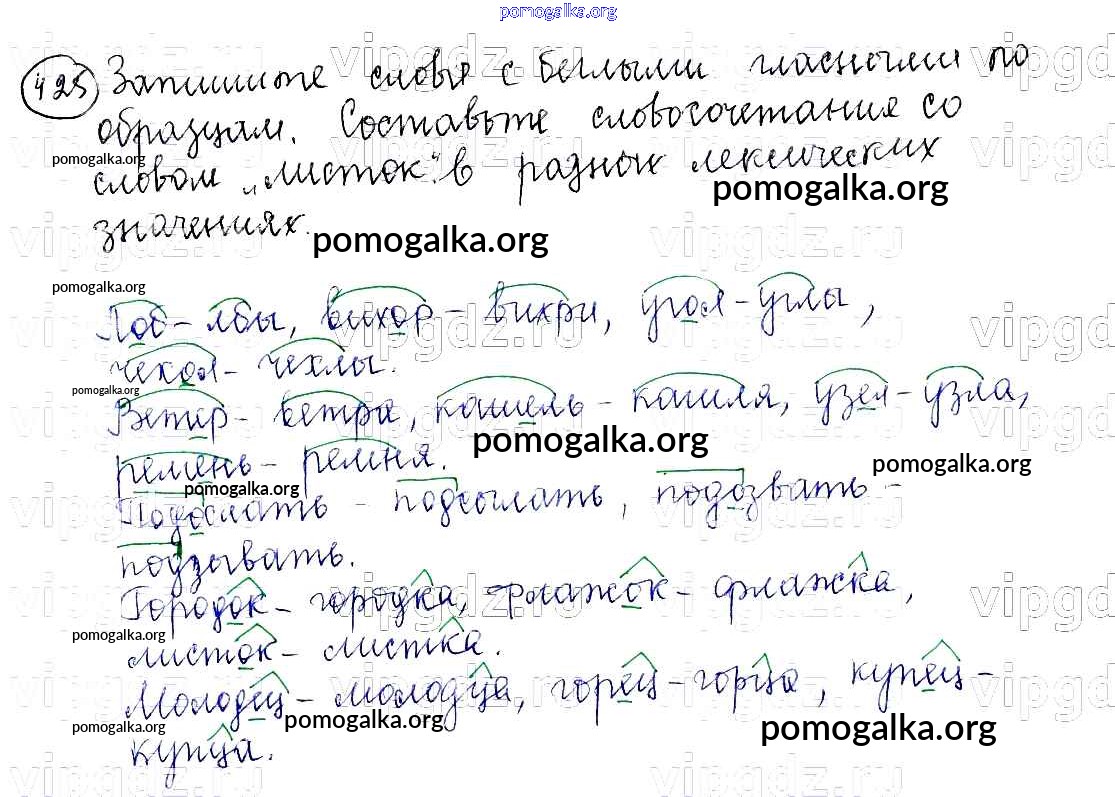 pomogalka.org
425 Запишите слова с беглыми гласными по
образцам. Составьте словосочетания со
pomogalka.org
словом „листок" в разных лексических
pomogalka.org
значениях.
pomogalka.org
pomogalka.org
Лоб - лбы, вихор - вихри, угол - углы,
чехол - чехлы.
pomogalka.org
Ветер - ветра, кашель - кашля, узел - узла,
pomogalka.org
ремень - ремня.
pomogalka.org
pomogalka.org
Подослать - подсылать, подозвать -
подзывать.
Городок - городка, флажок - флажка,
pomogalka.org
листок - листка.
Молодец - молодца, горец - горца, купец -
pomogalka.org
pomogalka.org
pomogalka.org
купца.
vipgdz.ru